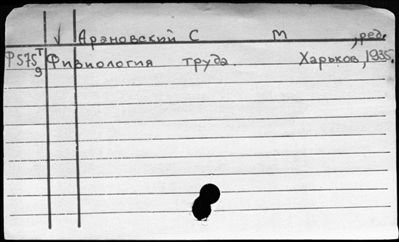 √ Арановский С М , ред.
PS75T Физиология труда. Харьков, 1935.
9